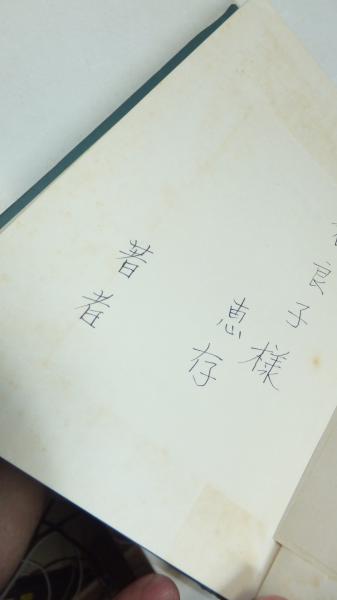 良子様
恵存
著者